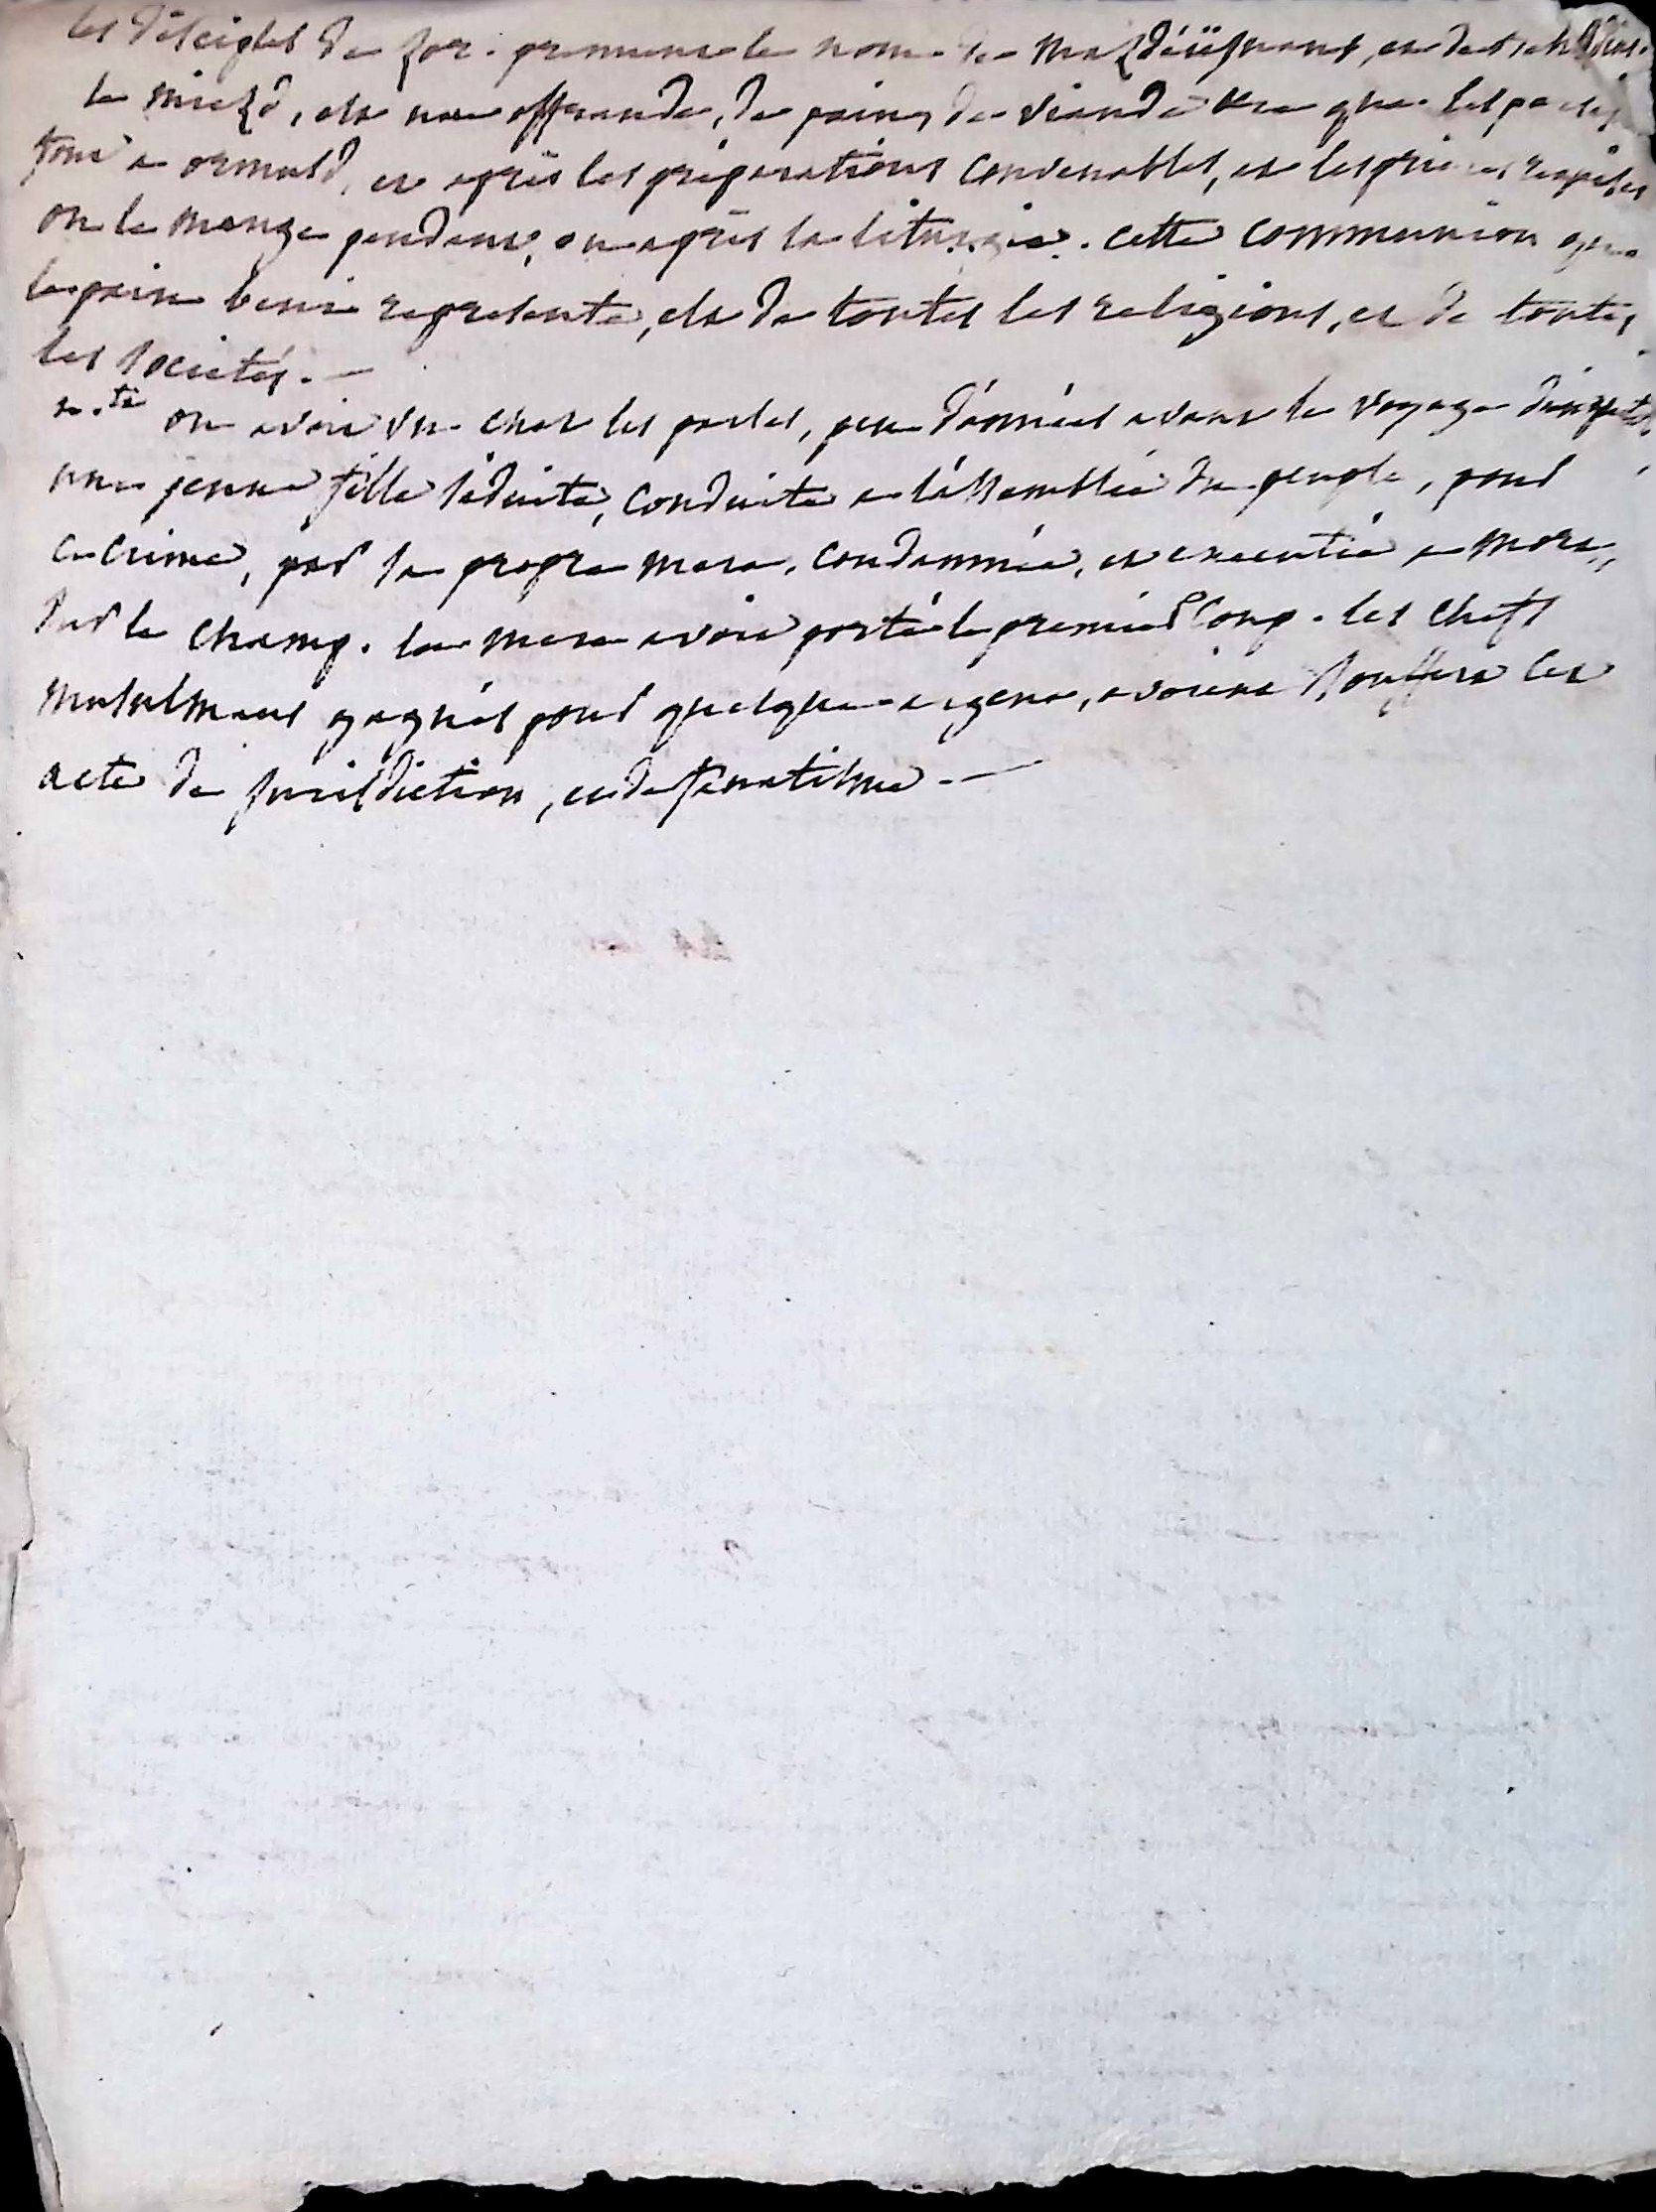 les disciples de zor. prennent le nom de mazdéiesnans, et de
le miezd, est une offrande, de pain, de viande &ca que les parses
font a ormusd, et après les préparations convenables, et les prieres requises
on le mange pendant, ou après la liturgie. cette communion que
le pain beni represente, est de toutes les religions, et de toutes
les societés. —
n.ta on avoit vu chez les parses, peu d'années avant le voyage d'anquetil,
une jeune fille séduite, conduite a l'assemblée du peuple, pour
ce crime, par sa propre mere, condamnée, et executée a mort,
sur le champ. la mere avoit porté le premier coup. les chefs
musulmans gagnés pour quelque argent, avoient souffert cet
acte de jurisdiction, et de fanatisme. —